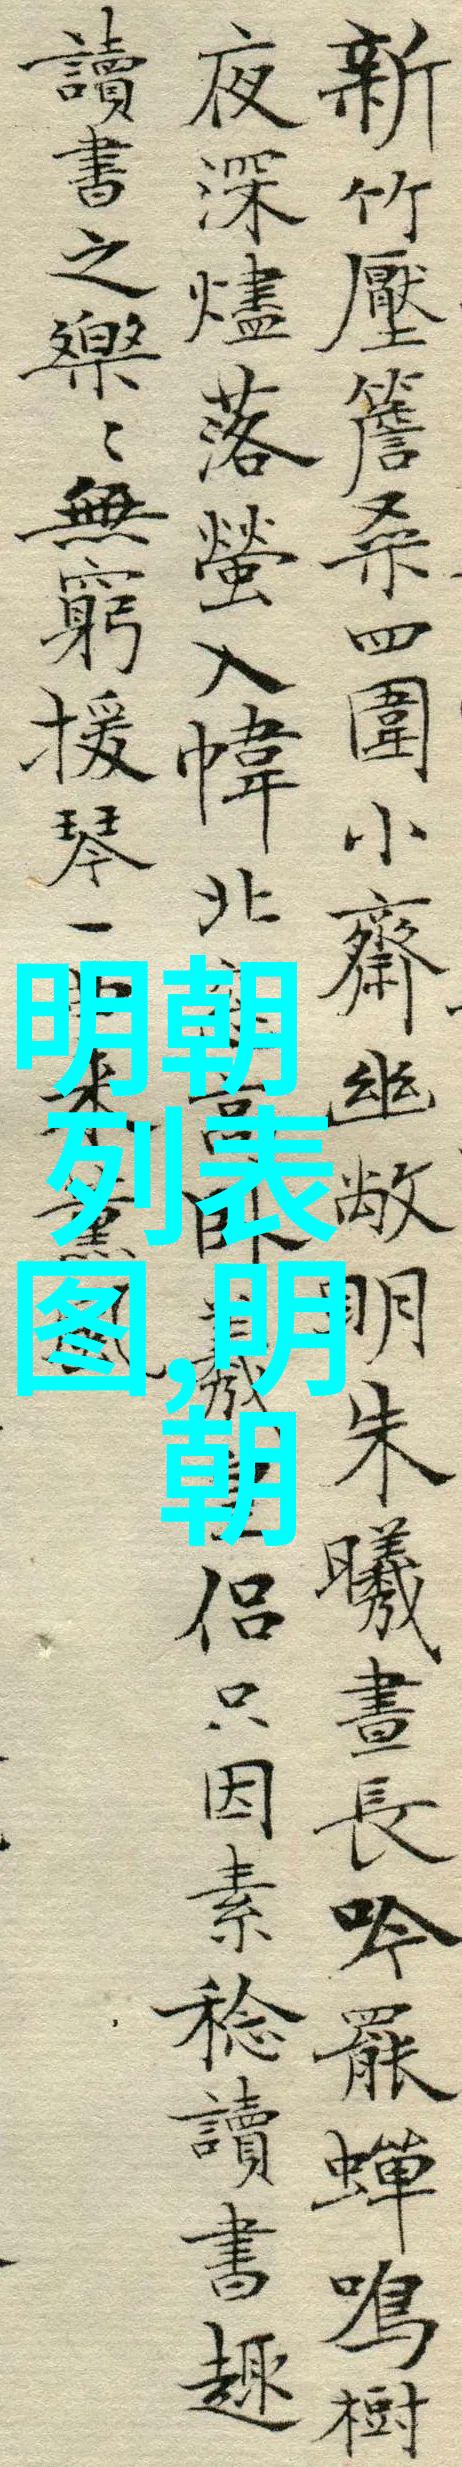 新竹壓簷桑四圍小齋幽敞明朱曦晝長吟罷蟬鳴樹
夜深燼落螢入幃北窗高臥羲皇侶只因素稔讀書趣
讀書之樂〻無窮援琴一曲來薰風
明朝
列表
图,明
朝